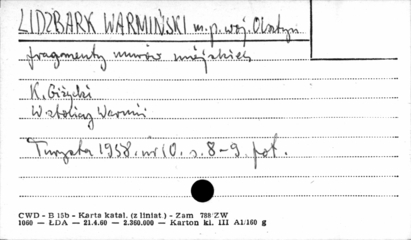 LIDZBARK WARMIŃSKI m. p. woj. Olsztyn
fragmenty murów miejskich
K. Giżycki
W stolicy Warmii
Turysta 1958. nr 10. s. 8-9. fot.
CWD - B 15b - Karta katal. (z liniat) - Zam 788 ZW
1060 — ŁDA — 21.4.60 — 2.360.000 — Karton kl. III A1/160 g